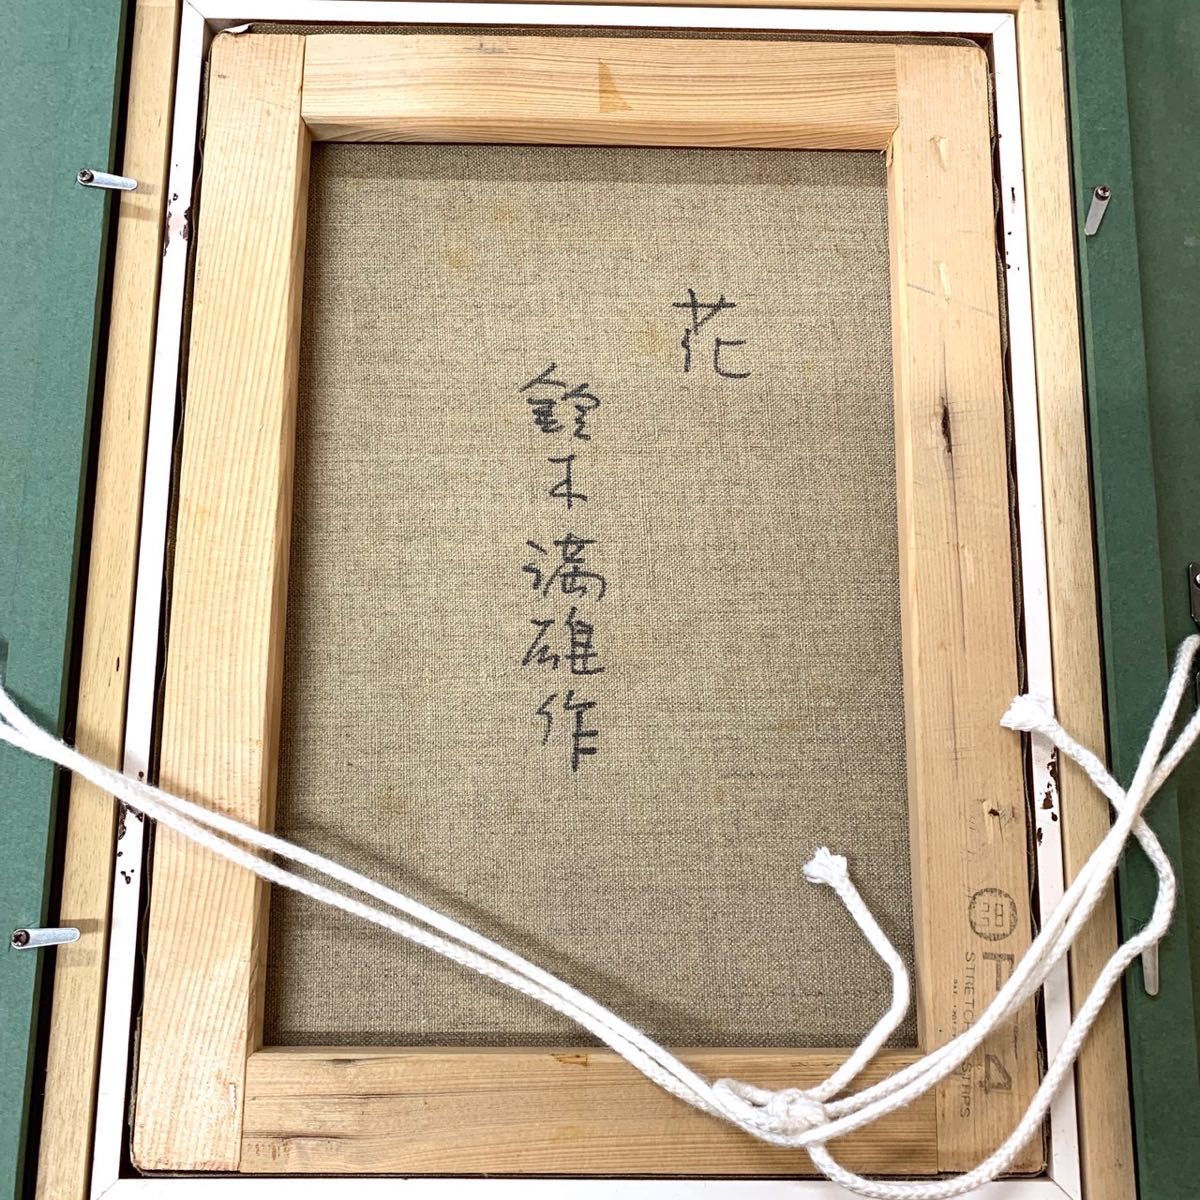 花
鈴木満雄作
F 4
STRETCH STRIPS